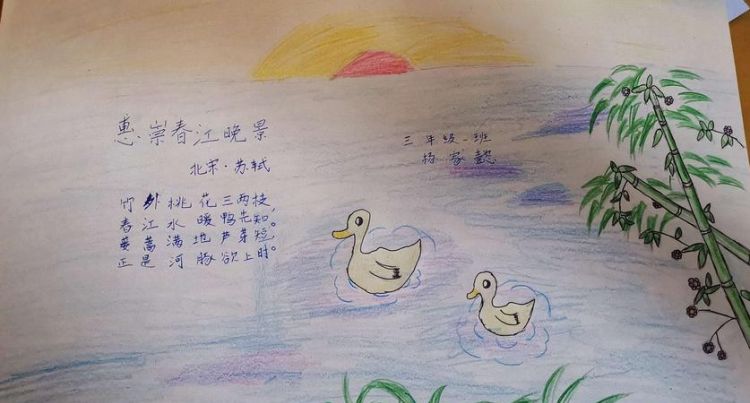 惠崇春江晚景
北宋·苏轼
竹外桃花三两枝,
春江水暖鸭先知。
蒌蒿满地芦芽短,
正是河豚欲上时。
三年级二班
杨家懿